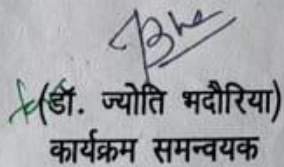 (डॉ. ज्योति भदौरिया)
कार्यक्रम समन्वयक